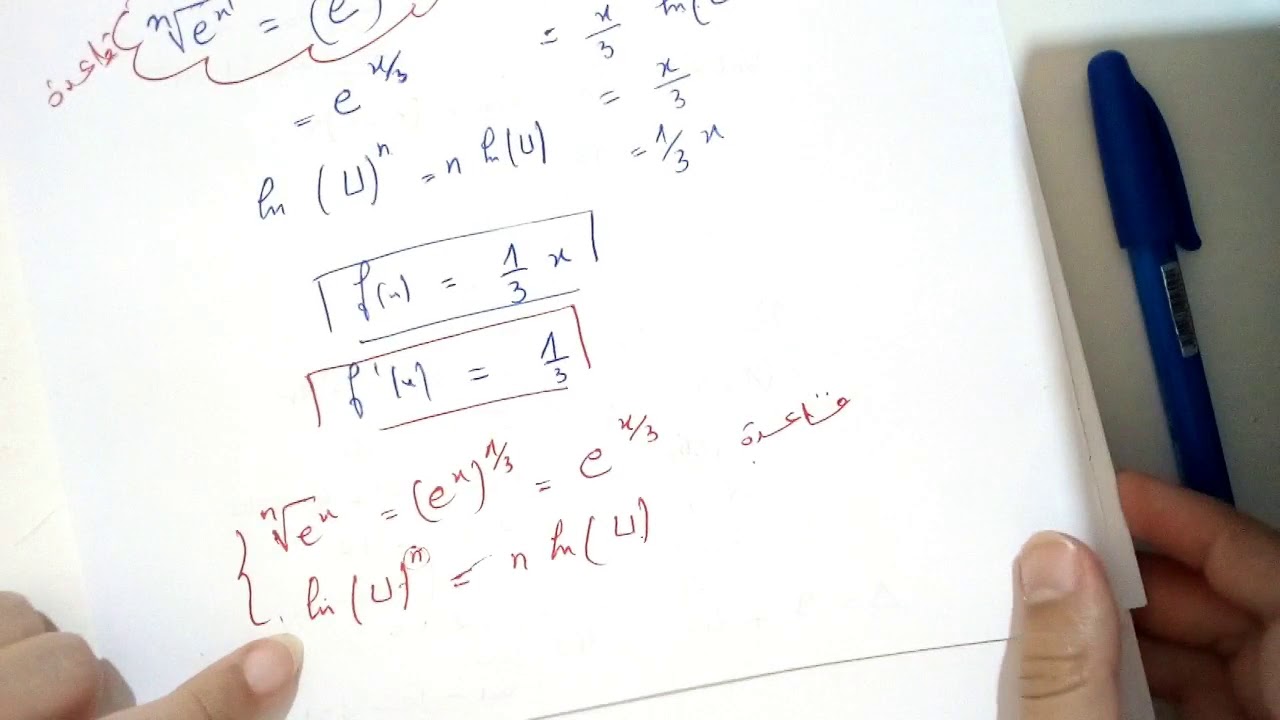 قاعدة
ⁿ√eˣ = (e
= x/3 ln(
= e^(x/3)
= x/3
ln (U)ⁿ = n ln(U)
= 1/3 x
f(x) = 1/3 x
f'(x) = 1/3
قاعدة
ⁿ√eˣ = (eˣ)^(1/3) = e^(x/3)
ln (U)ⁿ = n ln(U)